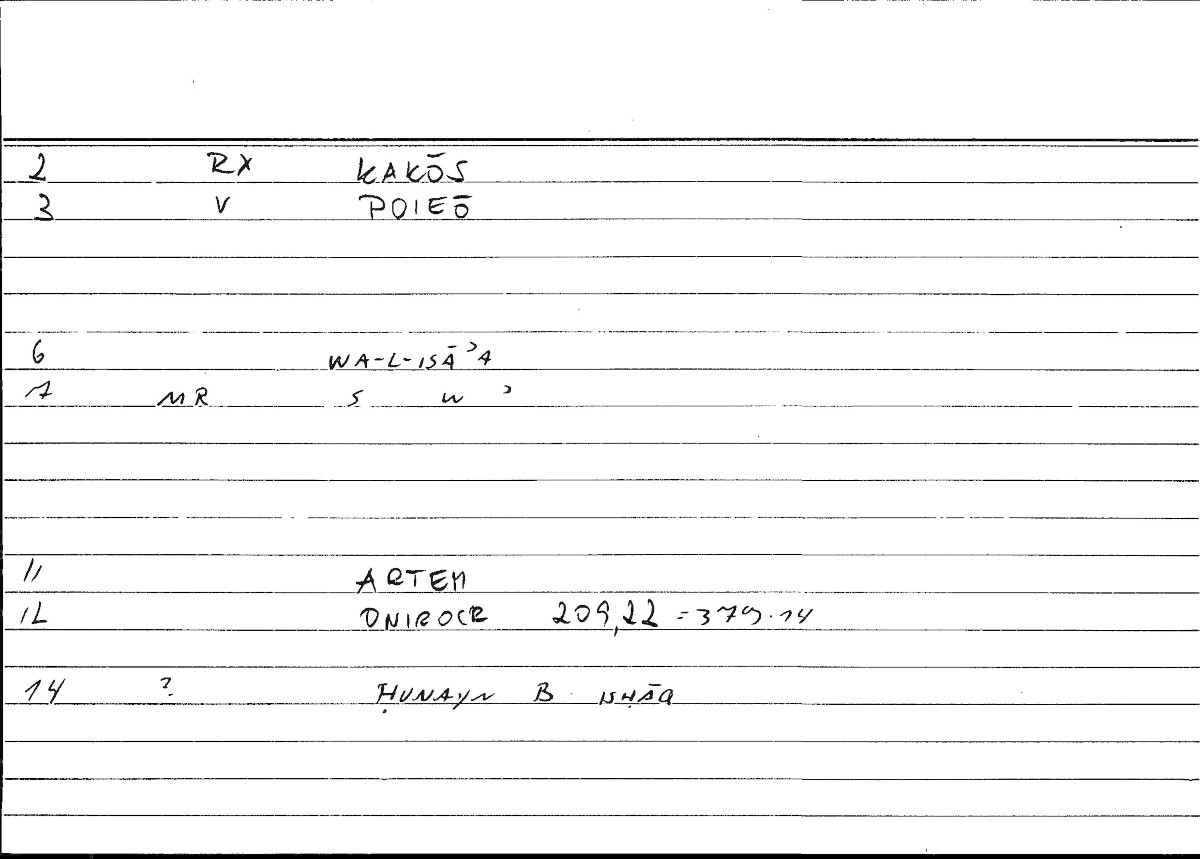 2 RX KAKŌS
3 V POIEŌ
6 WA-L-ISĀʾA
7 MR S W ʾ
11 ARTEM
12 ONIROCR 209,22 = 379.14
14 ? ḤUNAYN B ISḤĀQ